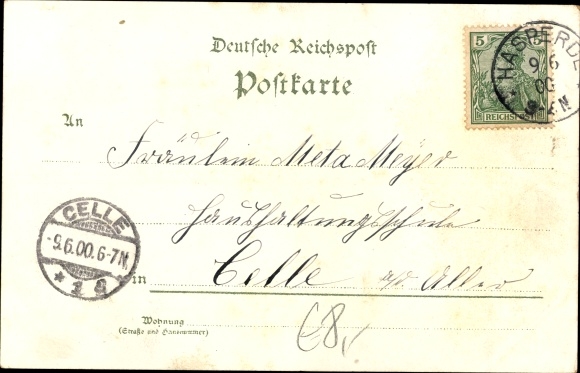 Deutsche Reichspost
Postkarte
5
REICHSPOST
HASPERDE
9/6
00
8-9N.
An
Fräulein Meta Meyer
Haushaltungsschule
CELLE
-9.6.00.6-7N.
* 1 a
in Celle a/d Aller
Wohnung
(Straße und Hausnummer)
€8,